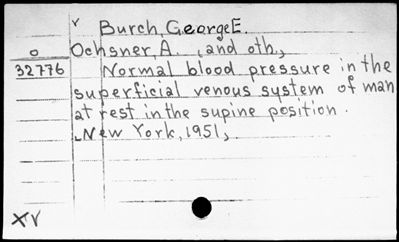 v Burch, George E.
o Ochsner, A. (and oth.,
32776 Normal blood pressure in the
superficial venous system of man
at rest in the supine position.
New York, 1951,
XV